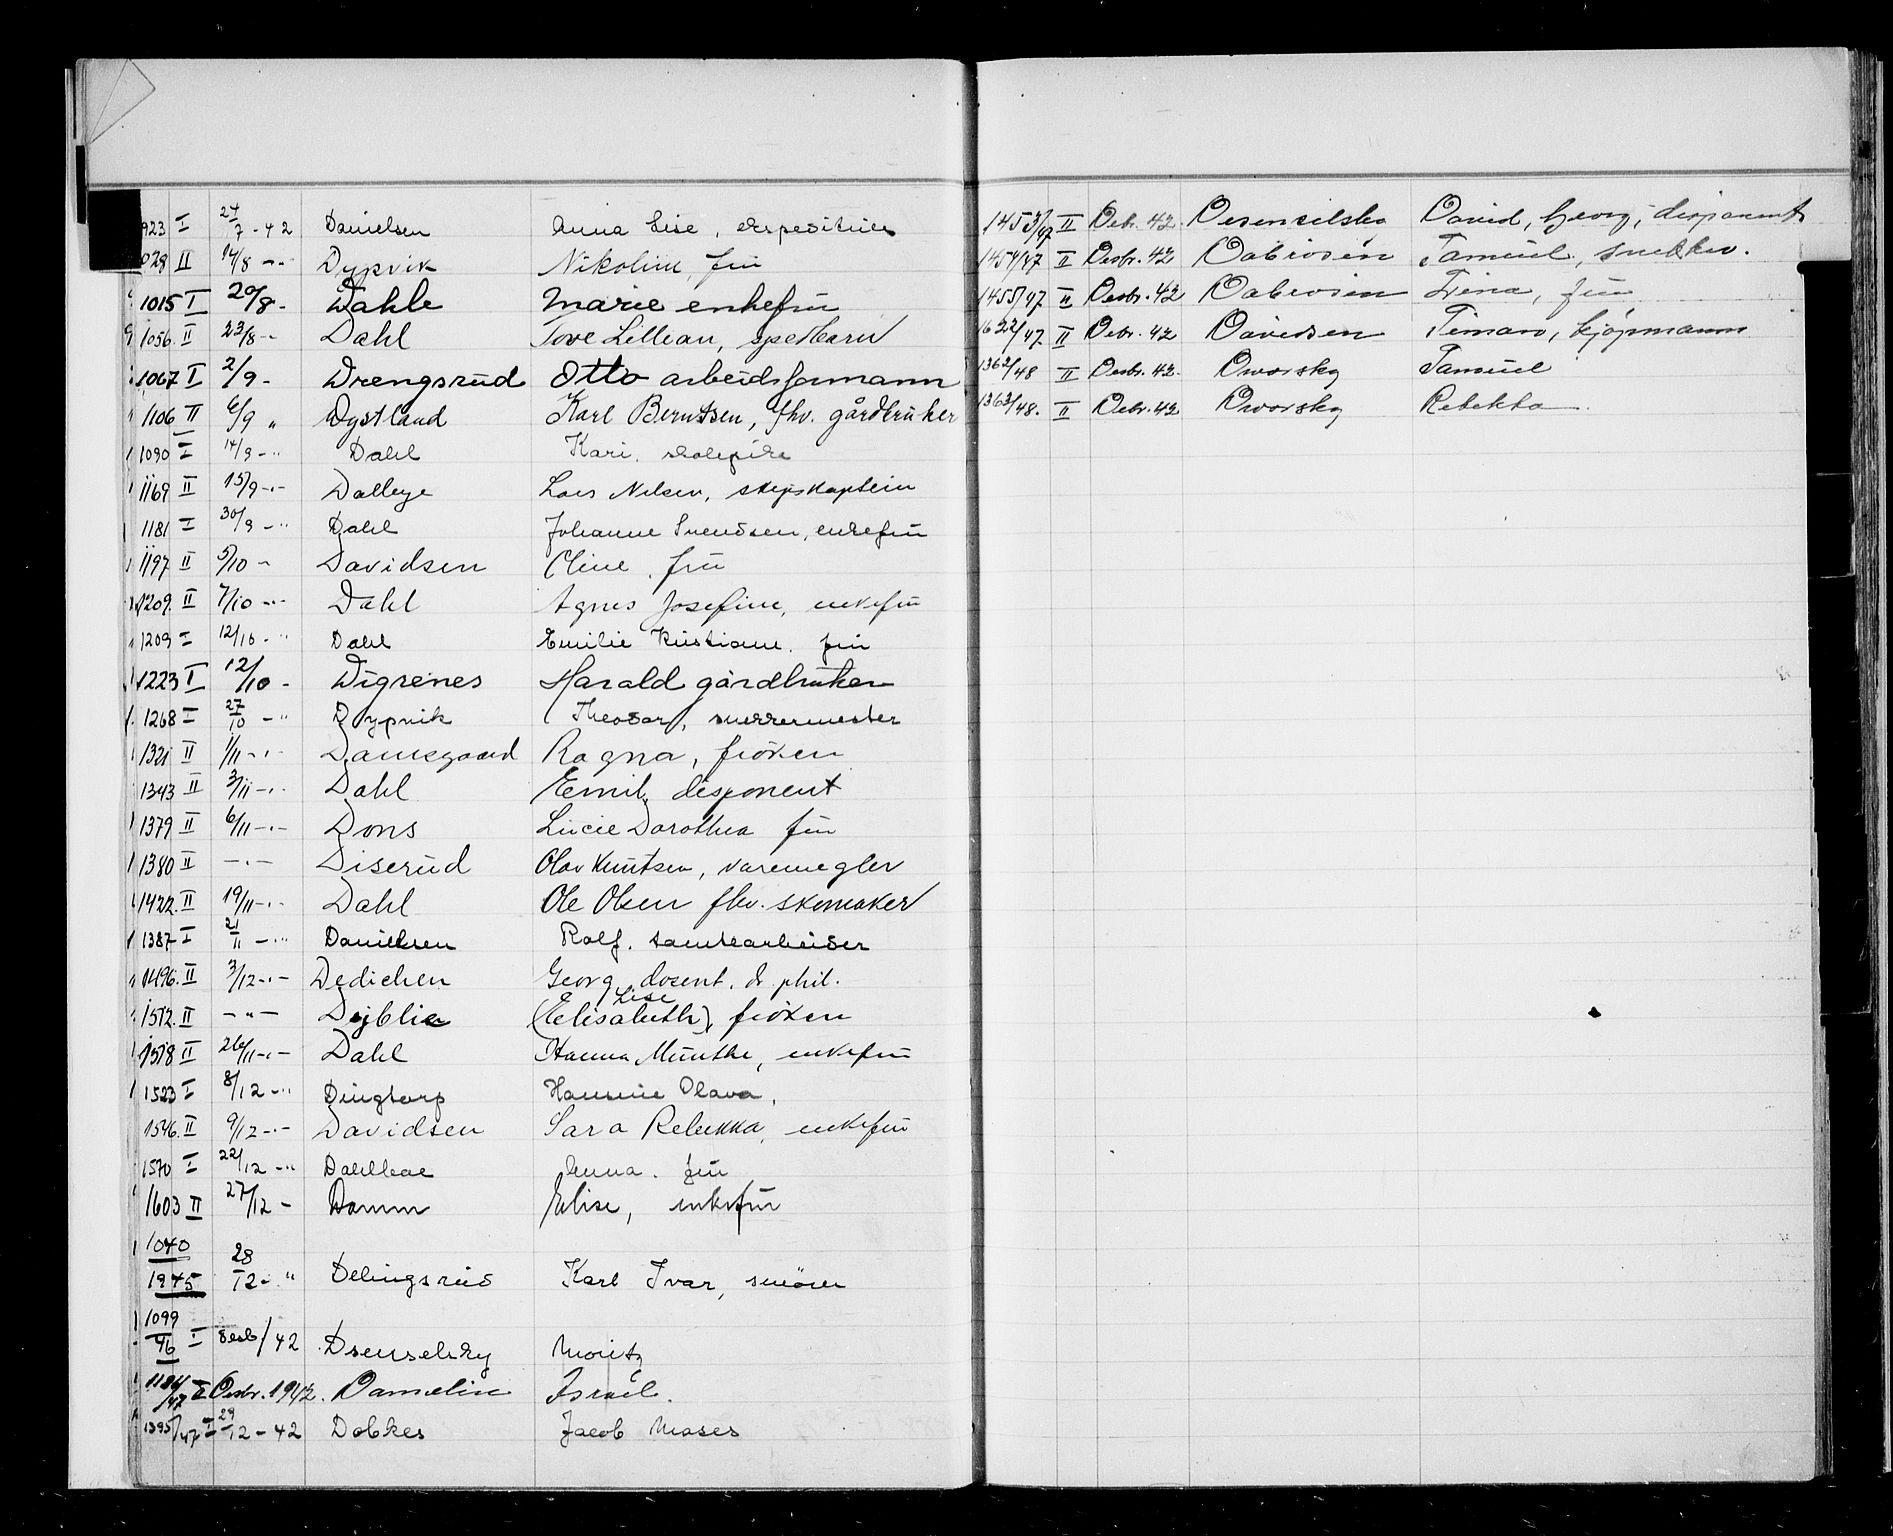 923 I 24/7 - 42 Danielsen Anna Lise, ekspeditrise
1028 II 14/8 -"- Dypvik Nikoline, frü
1015 I 20/8 - Dahle Marie enkefrü
1056 II 23/8 - Dahl Tove Lillian, spedbarn
1067 I 2/9 - Drengsrüd Otto arbeidsformann
1106 II 6/9 " Dystland Karl Berntsen, fhv. gårdbruker
1090 I 14/9 -" Dahl Kari, skolepike
1169 II 15/9 -"- Dalleye Lars Nilsen, skipskaptein
1181 I 30/9 -" Dahl Johanne Svendsen, enkefrü
1197 II 5/10 - Davidsen Oline, frü
1209 II 7/10 -"- Dahl Agnes Josefine, enkefrü
1209 I 12/10 -" Dahl Emilie Kristiane, frü
1223 I 12/10 - Digrenes Harald gårdbrüker
1268 I 27/10 -" Dypvik Theodor, snekkermester
1321 II 1/11 -"- Damsgaard Ragna, frøken
1343 II 3/11 -"- Dahl Emil, disponent
1379 II 6/11 -"- Dons Lücie Dorothea frü
1380 II -"- Diserüd Olav Knütsen, varemegler
1422 II 19/11 -"- Dahl Ole Olsen fhv. skomaker
1387 I 21/11 -" Danielsen Rolf, tomtearbeider
1496 II 3/12 -"- Dedichen Georg, dosent, dr. phil.
Lise
1512 II -"- Døjblie (Elisabeth), frøken
1518 II 26/11 -"- Dahl Hanna Münthe, enkefrü
1523 I 8/12 -" Dingtorp Hansine Olava,
1546 II 9/12 -"- Davidsen Sara Rebekka, enkefrü
1570 I 22/12 -" Dahlboe Anna, frü
1603 II 27/12 - Damm Elise, enkefrü
1040
1945 28/12 -" Delingsrüd Karl Ivar, snører
1099
46 I desb/42 Dsenselsky Moritz
1184/47 II Desbr. 1942. Damelin Israel.
1395/47 I 29/12 - 42 Dobkes Jacob Moses
1453/47 II Debr. 42 Desenselsky David, Georg, disponent
1454/47 II Desbr. 42 Dabrosen Samüel, snekker.
1455/47 II Desbr. 42 Dabrosen Trina, frü
1622/47 II Debr. 42 Davidsen Simon, kjøpmann
1362/48 II Desbr. 42. Dworsky Samüel
1363/48. II Debr. 42 Dworsky Rebekka.